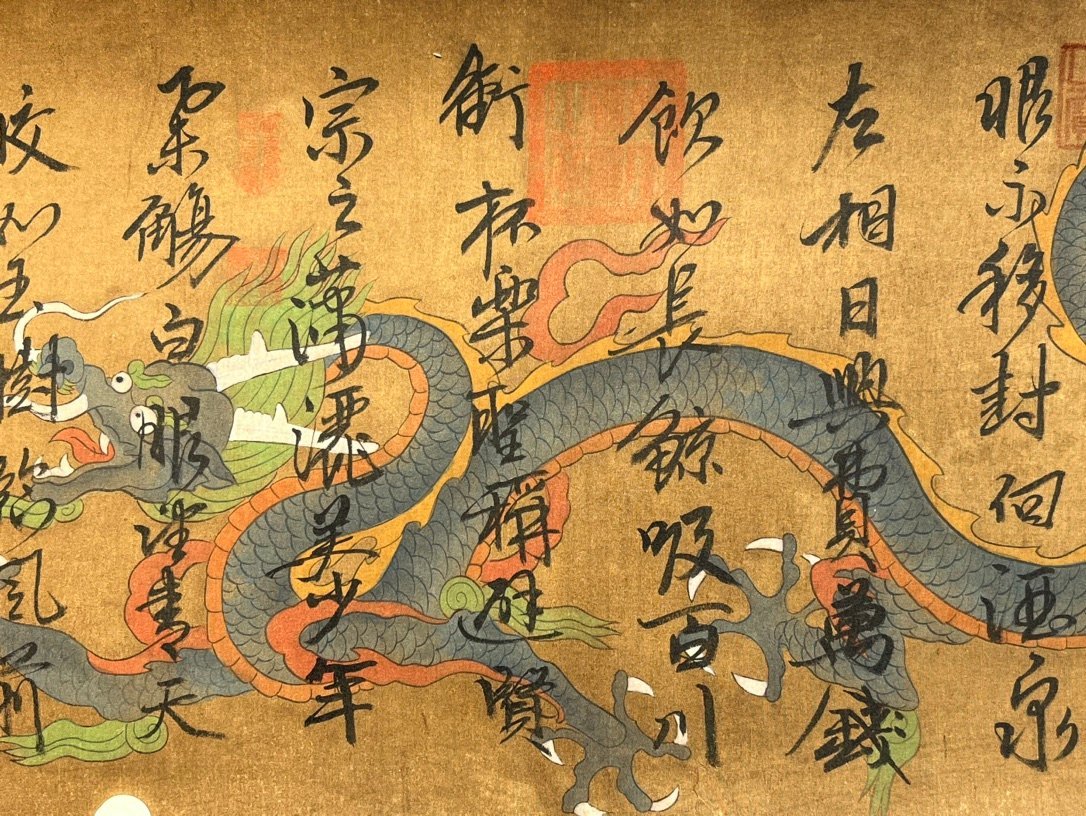 恨不移封向酒泉
左相日興費萬錢
飲如長鯨吸百川
銜杯樂聖稱避賢
宗之瀟灑美少年
舉觴白眼望青天
皎如玉樹臨風前